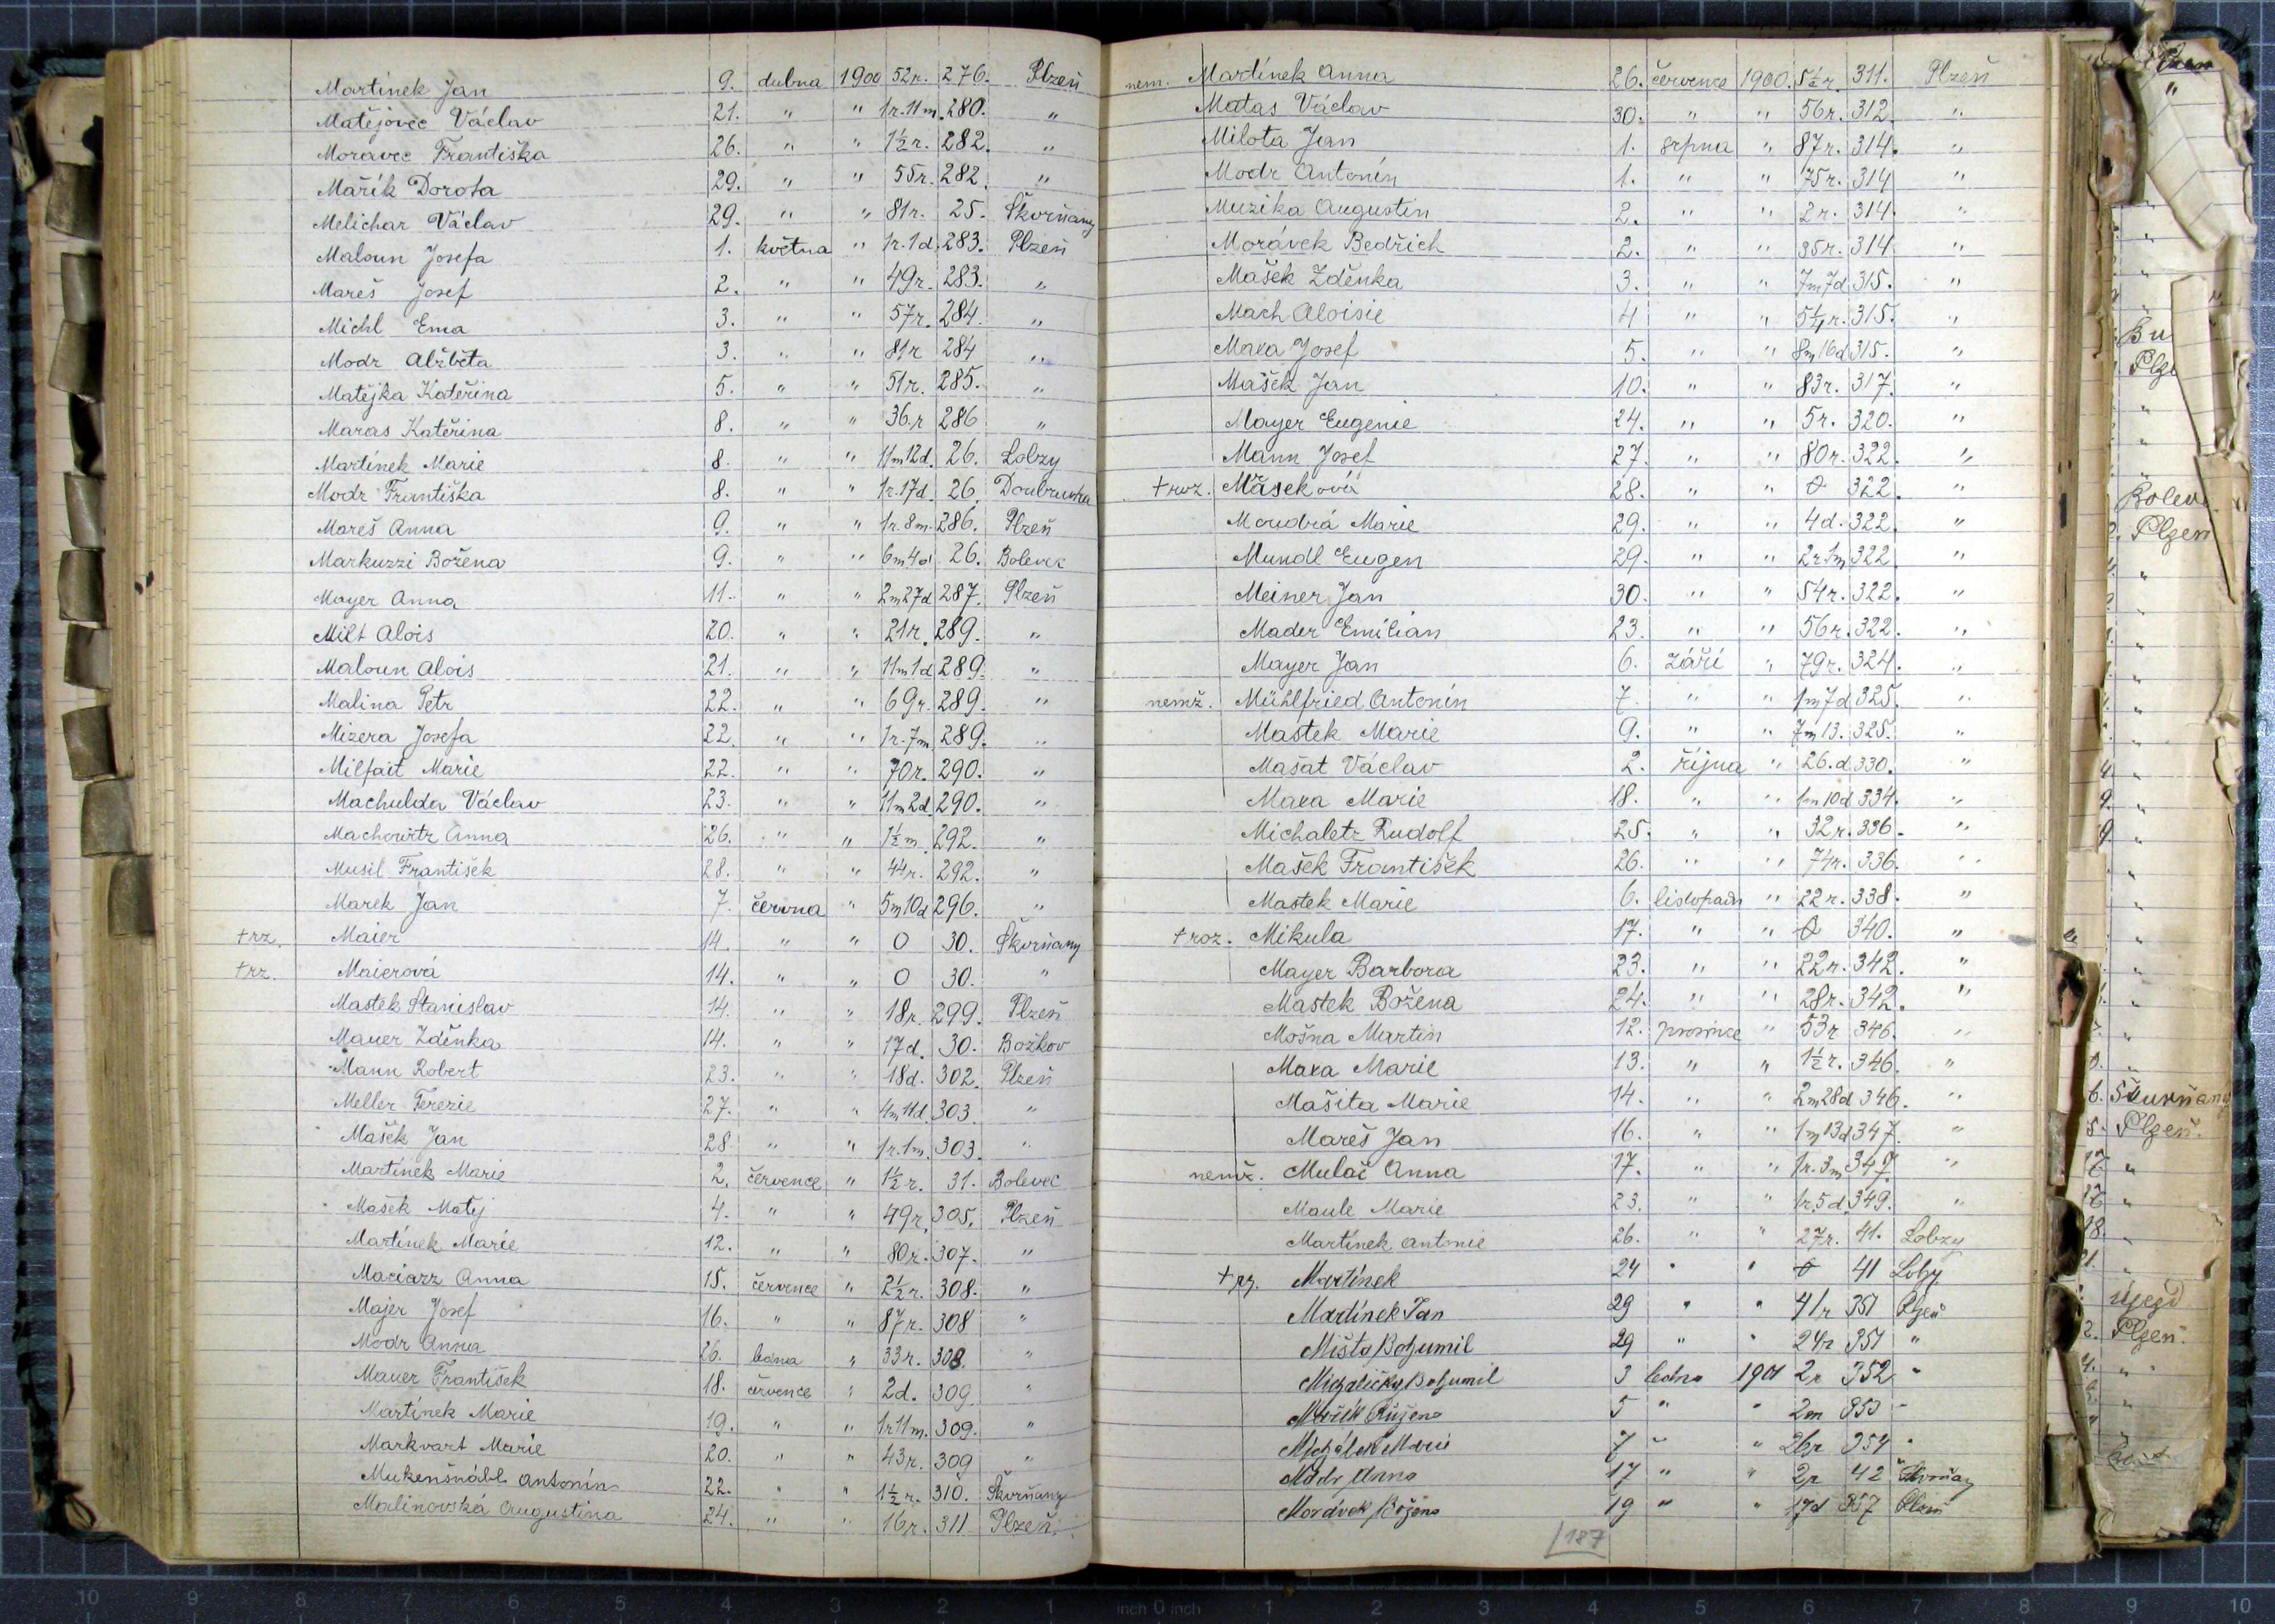 Martínek Jan 9. dubna 1900 52r. 276. Plzeň
Matějovec Václav 21. " " 1r.11m. 280. "
Moravec Františka 26. " " 1½r. 282. "
Mařík Dorota 29. " " 55r. 282. "
Melichar Václav 29. " " 81r. 25. Škvrňany
Maloun Josefa 1. května " 1r.1d. 283. Plzeň
Mareš Josef 2. " " 49r. 283. "
Michl Ema 3. " " 57r. 284. "
Modr Alžběta 3. " " 81r 284 "
Matějka Kateřina 5. " " 51r. 285. "
Maras Kateřina 8. " " 36.r 286 "
Martínek Marie 8. " " 11m12d. 26. Lobzy
Modr Františka 8. " " 1r.17d. 26. Doubravka
Mareš Anna 9. " " 1r.8m. 286. Plzeň
Markuzzi Božena 9. " " 6m4d 26. Bolevec
Mayer Anna 11. " " 2m27d 287. Plzeň
Milt Alois 20. " " 21r. 289. "
Maloun Alois 21. " " 11m1d 289. "
Malina Petr 22. " " 69r. 289. "
Mizera Josefa 22. " " 1r.7m 289. "
Milfait Marie 22. " " 70r. 290. "
Machulda Václav 23. " " 11m2d 290. "
Machowitz Anna 26. " " 1½m 292. "
Musil František 28. " " 44r. 292. "
Marek Jan 7. června " 5m10d 296. "
†rz. Maier 14. " " 0 30. Škvrňany
†rz. Maierová 14. " " 0 30. "
Mastek Stanislav 14. " " 18r. 299. Plzeň
Mauer Zděnka 14. " " 17d. 30. Božkov
Mann Robert 23. " " 18d. 302. Plzeň
Meller Terezie 27. " " 4m11d. 303 "
Mašek Jan 28 " " 1r.1m. 303. "
Martínek Marie 2. července " 1½r. 31. Bolevec
Mašek Matěj 4. " " 49r. 305. Plzeň
Martínek Marie 12. " " 80r. 307. "
Maciazz Anna 15. července " 2½r. 308. "
Majer Josef 16. " " 87r. 308 "
Modr Anna 26. ledna " 33r. 308. "
Mauer František 18. července " 2d. 309. "
Martínek Marie 19. " " 1r11m. 309. "
Markvart Marie 20. " " 43r. 309 "
Mukenšnábl Antonín 22. " " 1½r. 310. Škvrňany
Malinovská Augustina 24. " " 16r. 311 Plzeň.
nem. Martínek Anna 26. července 1900. 5½r. 311. Plzeň
Matas Václav 30. " " 56r. 312. "
Milota Jan 1. srpna " 87r. 314. "
Modr Antonín 1. " " 75r. 314 "
Muzika Augustin 2. " " 2r. 314. "
Morávek Bedřich 2. " " 35r. 314 "
Mašek Zděnka 3. " " 7m7d 315. "
Mach Aloisie 4 " " 5¼r. 315. "
Maxa Josef 5. " " 8m16d 315. "
Mašek Jan 10. " " 83r. 317. "
Mayer Eugenie 24. " " 5r. 320. "
Mann Josef 27. " " 80r. 322. "
†roz. Mašeková 28. " " 0 322. "
Moudrá Marie 29. " " 4d. 322. "
Mundl Eugen 29. " " 2r1m 322. "
Meiner Jan 30. " " 54r. 322. "
Mader Emilian 23. " " 56r. 322. "
Mayer Jan 6. září " 79r. 324. "
nemž. Mühlfried Antonín 7. " " 1m7d 325. "
Mastek Marie 9. " " 7m13. 325. "
Mašat Václav 2. října " 26.d 330. "
Maxa Marie 18. " " 1m10d 334. "
Michaletz Rudolf 25. " " 32r. 336. "
Mašek František 26. " " 74r. 336. "
Mastek Marie 6. listopadu " 22r. 338. "
†roz. Mikula 17. " " 0 340. "
Mayer Barbora 23. " " 22r. 342. "
Mastek Božena 24. " " 28r. 342. "
Mošna Martin 12. prosince " 53r 346. "
Maxa Marie 13. " " 1½r. 346. "
Mašita Marie 14. " " 2m28d 346. "
Mareš Jan 16. " " 1m13d 347. "
nemž. Mulač Anna 17. " " 1r.3m 347. "
Maule Marie 23. " " 1r.5d 349. "
Martínek Antonie 26. " " 27r. 41. Lobzy
†rz. Martínek 24 " " 0 41 Lobzy
Martínek Jan 29 " " 41r 351 Plzeň
Mišta Bohumil 29 " " 24r 351 "
Michaličky Bohumil 3 ledna 1901 2r 352 "
Mařík Růžena 5 " " 2m 353 "
Michálek Marie 7 " " 26r 354 "
Modr Anna 17 " " 2r 42 Škvrňany
Morávek Božena 19 " " 17d 357 Plzeň
187
Bu
Plze
Bolev
Plzeň
Škurňany
Plzeň.
Újezd
Plzeň.